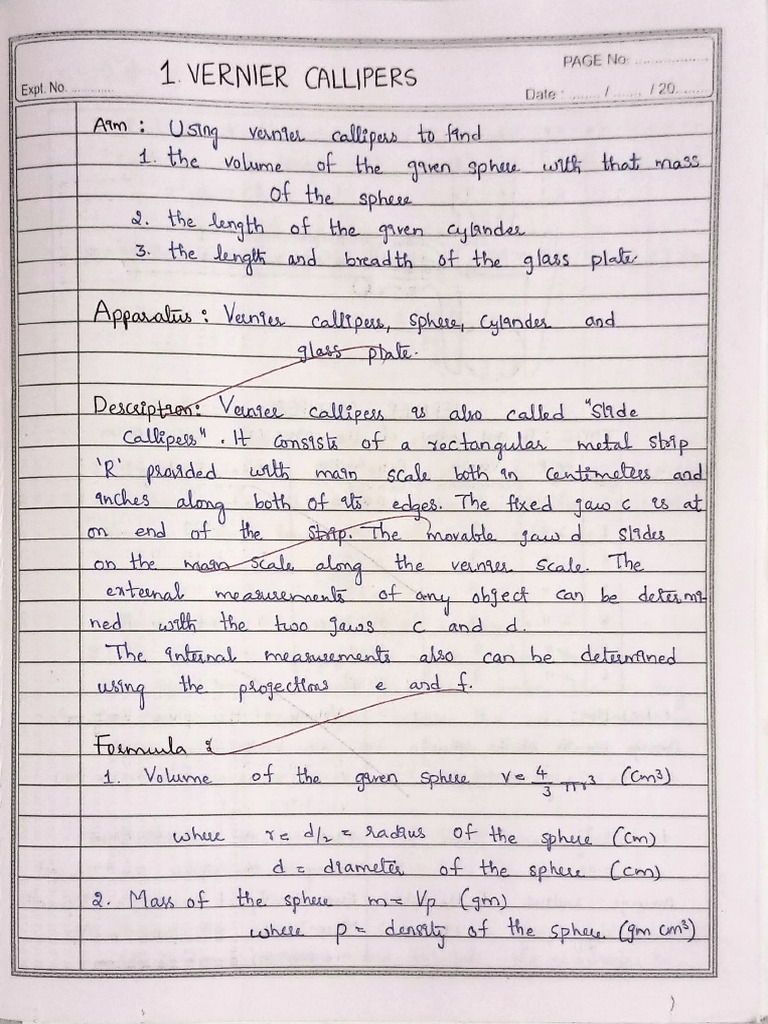 PAGE No: ..................
Expt. No. ............
1. VERNIER CALLIPERS
Date : ........ / ........ / 20.........
Aim : Using vernier callipers to find
1. the volume of the given sphere with that mass
of the sphere
2. the length of the given cylander
3. the length and breadth of the glass plate.
Apparatus : Vernier callipers, sphere, cylander and
glass plate.
Description: Vernier callipers is also called "Slide
Callipers". It consists of a rectangular metal strip
'R' provided with main scale both in centimeters and
inches along both of its edges. The fixed jaw c is at
on end of the strip. The movable jaw d slides
on the main scale along the vernier scale. The
external measurements of any object can be determi-
ned with the two jaws c and d.
The internal measurements also can be determined
using the projections e and f.
Formula :
1. Volume of the given sphere v = 4/3 πr³ (cm³)
where r = d/2 = radius of the sphere (cm)
d = diameter of the sphere (cm)
2. Mass of the sphere m = Vp (gm)
where p = density of the sphere (gm cm³)